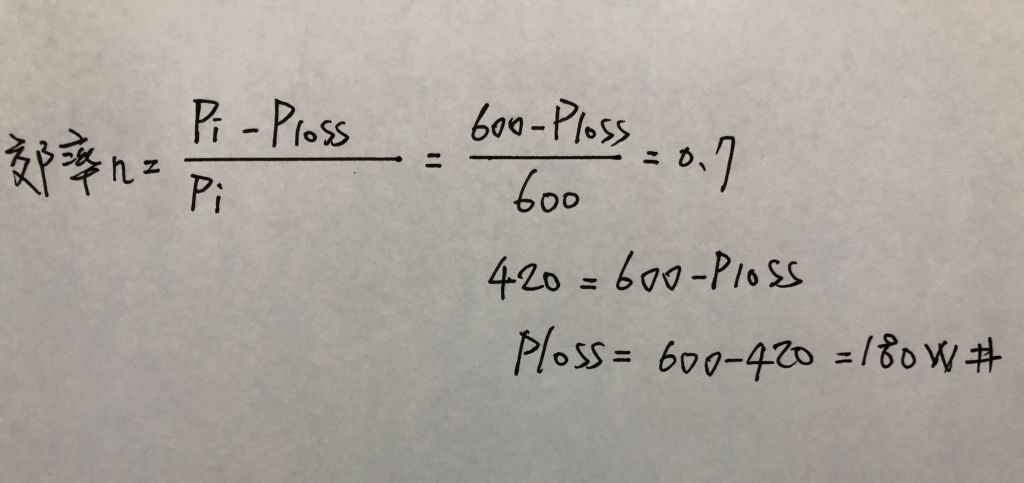 効率n = Pi - Ploss / Pi = 600 - Ploss / 600 = 0.7
420 = 600 - Ploss
Ploss = 600 - 420 = 180W #